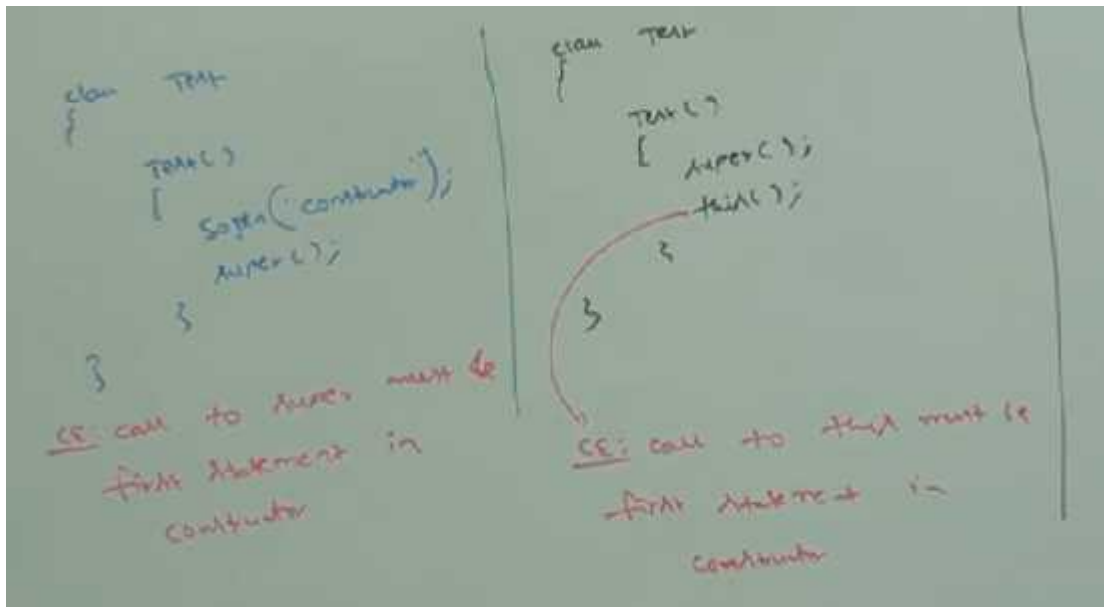 class Test
{
Test()
{
Sopln("constructor");
super();
}
}
CE: call to super must be
first statement in
constructor
class Test
{
Test()
{
super();
this();
}
}
CE: call to this must be
first statement in
constructor